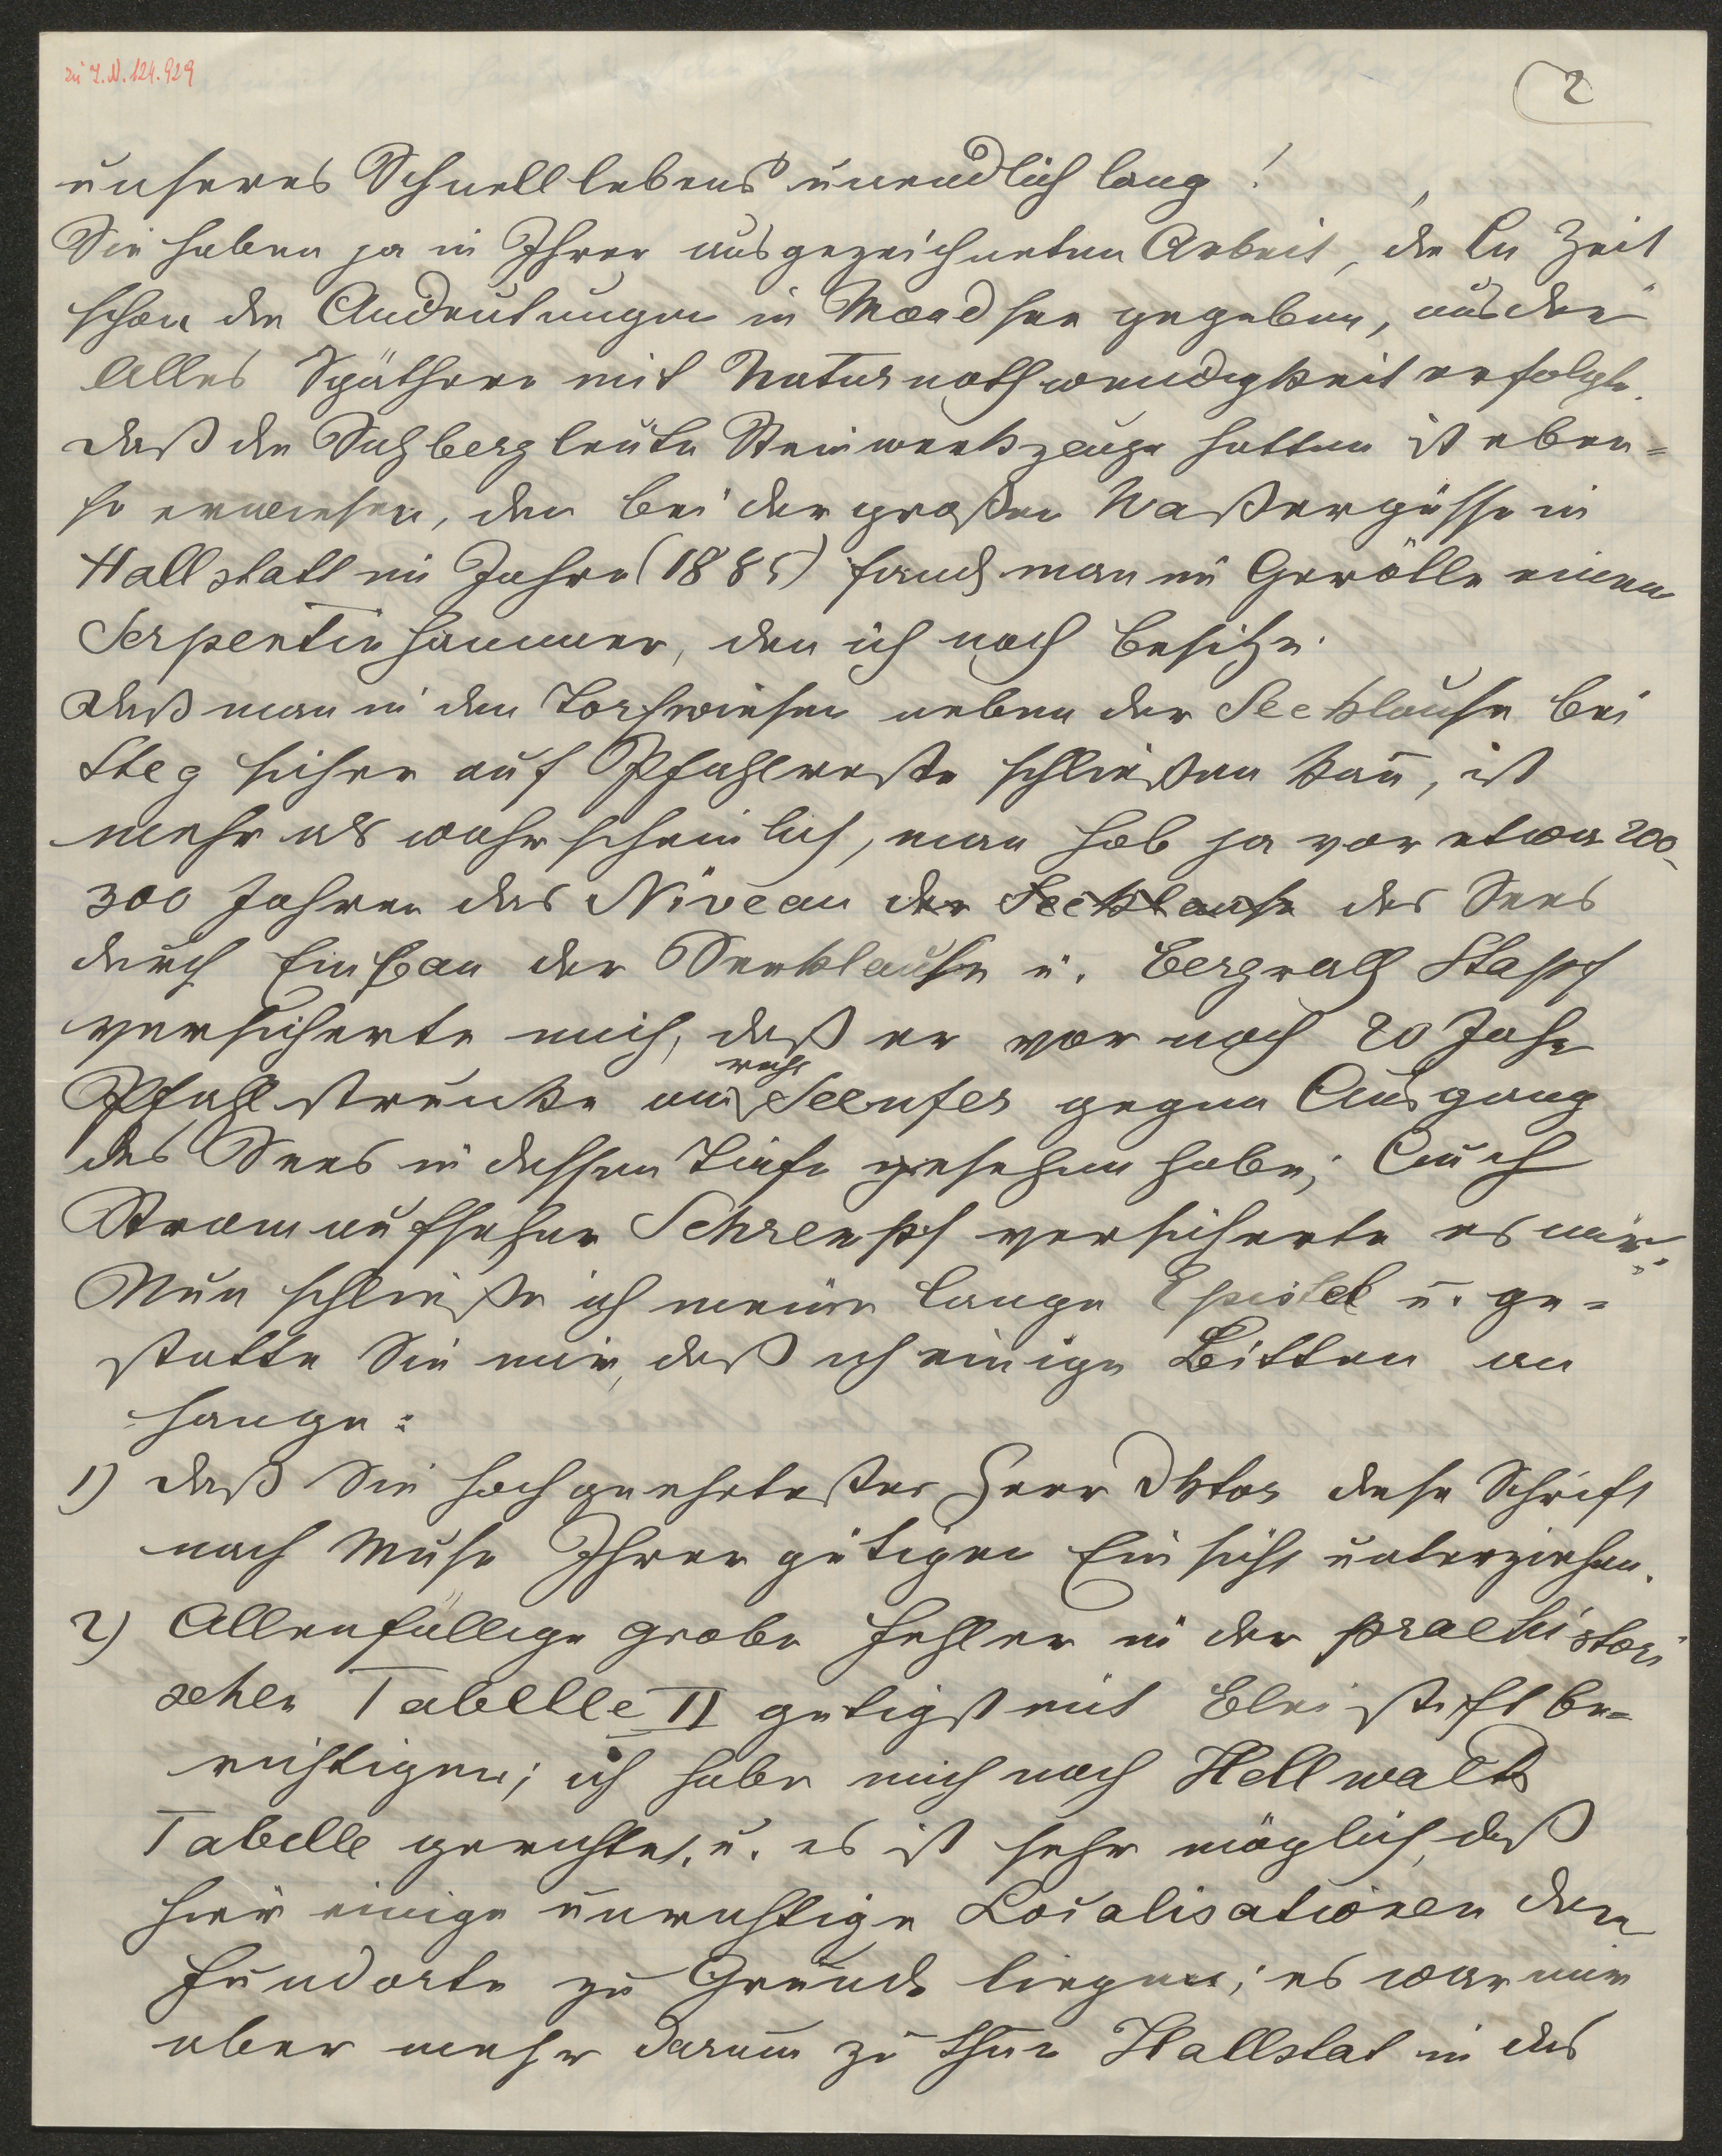 zu I.N. 124.929
2
unseres Schnelllebens unendlich lang!
Sie haben ja in Ihrer ausgezeichneten Arbeit, die Cu Zeit
schon die Andeutungen in Mondsee gegeben, aus der
Alles Spätere mit Naturnothwendigkeit erfolgte.
Daß die Salzbergleute Steinwerkzeuge hatten ist eben=
so erwiesen, den bei der großen Waßergüsse in
Hallstatt im Jahre (1885) fand man im Gerölle einen
Serpentinhammer, den ich noch besitze.
Daß man in den Torfwiesen neben der Seeklause bei
Steg sicher auf Pfahlreste schließen kan̅, ist
mehr als wahrscheinlich, man hob ja vor etwa 200-
300 Jahren das Niveau der Seeklause des Sees
durch Einbau der Seeklause u. Bergrath Stapf
versicherte mich, daß er vor noch 20 Jahr
Pfahlstrunke am recht Seeufer gegen Ausgang
des Sees in dessen Tiefe gesehen habe; Auch
Stromaufseher Schrempf versicherte es mir.
Nun schließe ich meine lange Epistel u. ge=
statte Sie mir, daß ich einige Bitten an
hange:
1) daß Sie hochgeehrtester Herr Dktor diese Schrift
nach Muse Ihrer gütigen Einsicht unterziehen.
2) Allenfällige grobe Fehler in der praehistori
schen Tabelle II gutigst mit Bleistift be=
richtigen; ich habe mich nach Hellwalds
Tabelle gerichtet, u. es ist sehr möglich, daß
hier einige unrichtige Localisationen der
Fundorte zu Grunde liegen; es war mir
aber mehr darum zu thun Hallstat in das